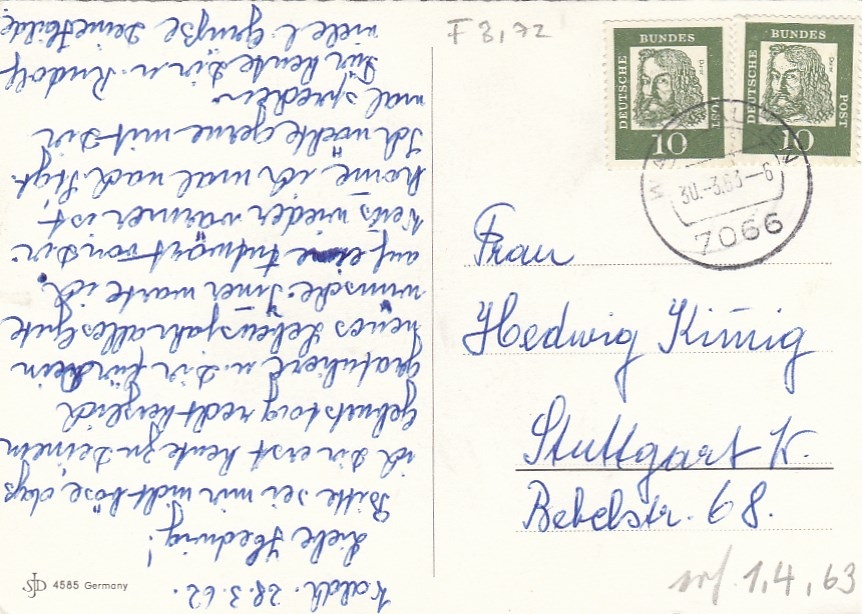 Waldh. 28.3.62.
Liebe Hedwig!
Bitte sei mir nicht böse, dass
ich Dir erst heute zu Deinem
Geburtstag recht herzlich
gratuliere u. Dir für Dein
neues Lebensjahr alles Gute
wünsche. Imer warte ich
auf Antwort von Dir.
wieder warmer ist,
kome ich mal nach Stgt.
Ich möchte gerne mit Dir
mal sprechen
Für heute Dir u. Rudolf
viele l. Grüße Deine Hilde
F 3,72
DEUTSCHE
BUNDES
POST
Dürer
10
DEUTSCHE
BUNDES
POST
Dürer
10
30.-3.63-6
7066
Frau
Hedwig Kimig
Stuttgart W.
Bebelstr. 68.
SJD 4585 Germany
1,4,63